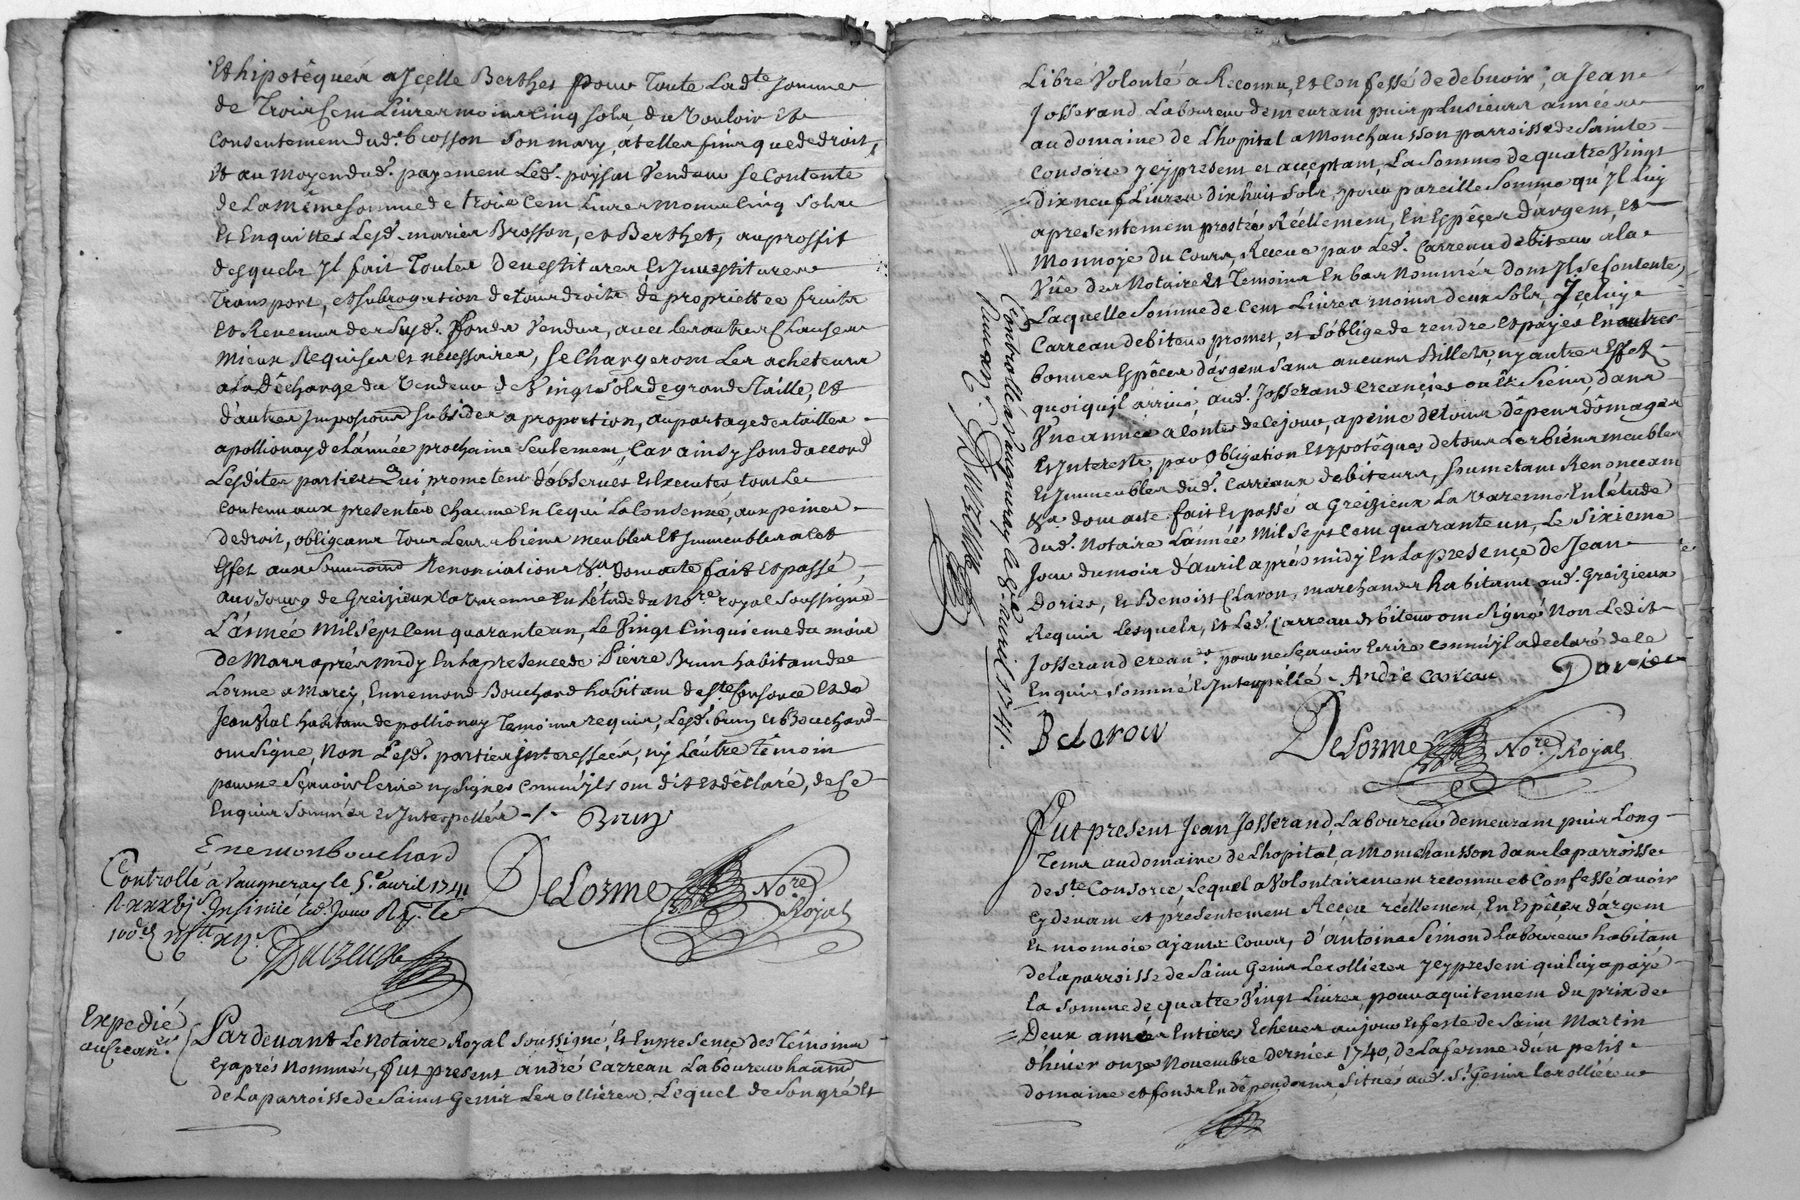 Et hipotêquéz a Jcelle Berthet pour Toute Ladte somme
de Trois Cem Livres moins Cinq sols, du vouloir Et
Consentement dud. brosson son mary, a telles fins que de droit,
Et au moyen dud. payement Led. vendeur se Contente
de La même somme de trois Cent Livres moins Cinq sols
Et En quitte Lesd. mariés Brosson, et Berthet, au proffit
desquels Jl fait Toutes Devestitures Et Jnvestitures
Transport, et subrogation de tous droits de propriettée fruits
Et Revenus des susd. Fonds vendus, avec les autres Clauses
mieux Requises Et necessaires, se Chargeront Les acheteurs
a La Dêcharge du Vendeur de Vingt sols de grande Taille, Et
d'autres Jmpositions subsides a proportion, au partage des tailles
apollionay de L'année prochaine seulement, Car ainsy sont d'accord
Lesdites parties Qui promettent d'observer Et Executer tout Le
Contenu aux presentes Chacune En ce qui La Conserne, aux peines
de droit, obligeans Tous Leurs biens meubles Et Jmmeubles a Cet
Effet aux soumissions Renonciations &a. dont acte fait Et passé,
au bourg de Greizieux La varenne En L'étude du Nore. royal soussigné
L'année Mil sept Cent quarante un, Le Vingt Cinquieme du mois
De Mars aprés midy En La presence de Pierre Brun habitant de
Lorme a Marcy, Ennemond Bouchard habitant de ste. Consorce Et de
Jean Vial habitant de pollionay Temoins requis, Lesd. brun et Bouchard
ont signe, Non Lesd. parties Jnteressées, ny L'autre têmoin
pour ne sçavoir Ecrire ny signer Comm'ils ont dit Et dêclaré, de Ce
Enquis sommés Et Jnterpellés -/- Brun
Enemon bouchard
Controllé a Vaugneray le 5.e avril 1741
DeLorme Nore. Royal
Expedié
au Crean.er
Pardevant Le Notaire Royal soussigné, Et En presence des Têmoins
Cy aprés Nommés, fut present andré Carreau Laboureur habitant
de La parroisse de Saint Genis Les ollieres, Lequel de son gré Et
Libre Volonté a Reconnu, Et Confessé de debvoir, a Jean
Josserand Laboureur demeurant puis plusieurs années
au domaine de L'hopital a Monchausson parroisse de Sainte
Consorce Jcy present et acceptant, La Somme de quatre Vingt
Dix neuf Livres dix huit sols, pour pareille Somme qu'Jl luy
a presentement prestée Réellement, En Espêces d'argent, Et
Monnoye du Cours, Receue par Led. Carreau debiteur a la
Vûe des Notaire Et Temoins En bas Nommés dont Jl se Contente,
Laquelle Somme de Cent Livres moins deux sols, Jceluy
Carreau debiteur promet, et s'oblige de rendre Et payer En autres
bonnes Espêces d'argent sans aucuns Billets, ny autres Effets
quoiqu'il arrive, aud. Josserand Creancier ou Es siens, dans
Vne année a Conter de Ce jour, a peine de tous dêpens dômages
Et Jnterests, par obligation Et ypotêques de tous Les biens meubles
Et Jmmeubles dud. Carreau debiteur, soumetant Renonceant
&a. dont acte fait Et passé a Greizieux La Varenne En L'étude
dud. Notaire L'année Mil sept Cent quarante un, Le sixieme
Jour du mois d'avril aprés midy En La presence de Jean
Dories, Et Benoist Claron, marchands habitans aud. Greizieux
Requis Lesquels, Et Led. Carreau debiteur ont signé Non Ledit
Josserand crean.er pour ne sçavoir Ecrire Comm'il a declaré de Ce
Enquis sommé Et Jnterpellé - André Careau Dories
B Claron
DeLorme Nore. Royal
Controllé a Vaugneray le 8.e avril 1741.
Fut present Jean Josserand, Laboureur demeurant puis Long-
Tems au domaine de L'hopital, a Monchausson dans la parroisse
de ste. Consorce Lequel a Volontairement reconnu et Confessé avoir
Cy devant et présentement Receu réellement, En Espêces d'argent
Et monnoie ayant Cours, d'antoine Simond Laboureur habitant
de La parroisse de Saint Genis Les ollieres Jcy present qui luy a payé
La somme de quatre Vingt Livres, pour aquitement du prix de
Deux années Entieres Echeues au jour Et feste de Saint Martin
d'hiver onze Novembre dernier 1740, de La ferme d'un petit
domaine et fonds En dêpendans, situés aud. St. Genis Les ollieres